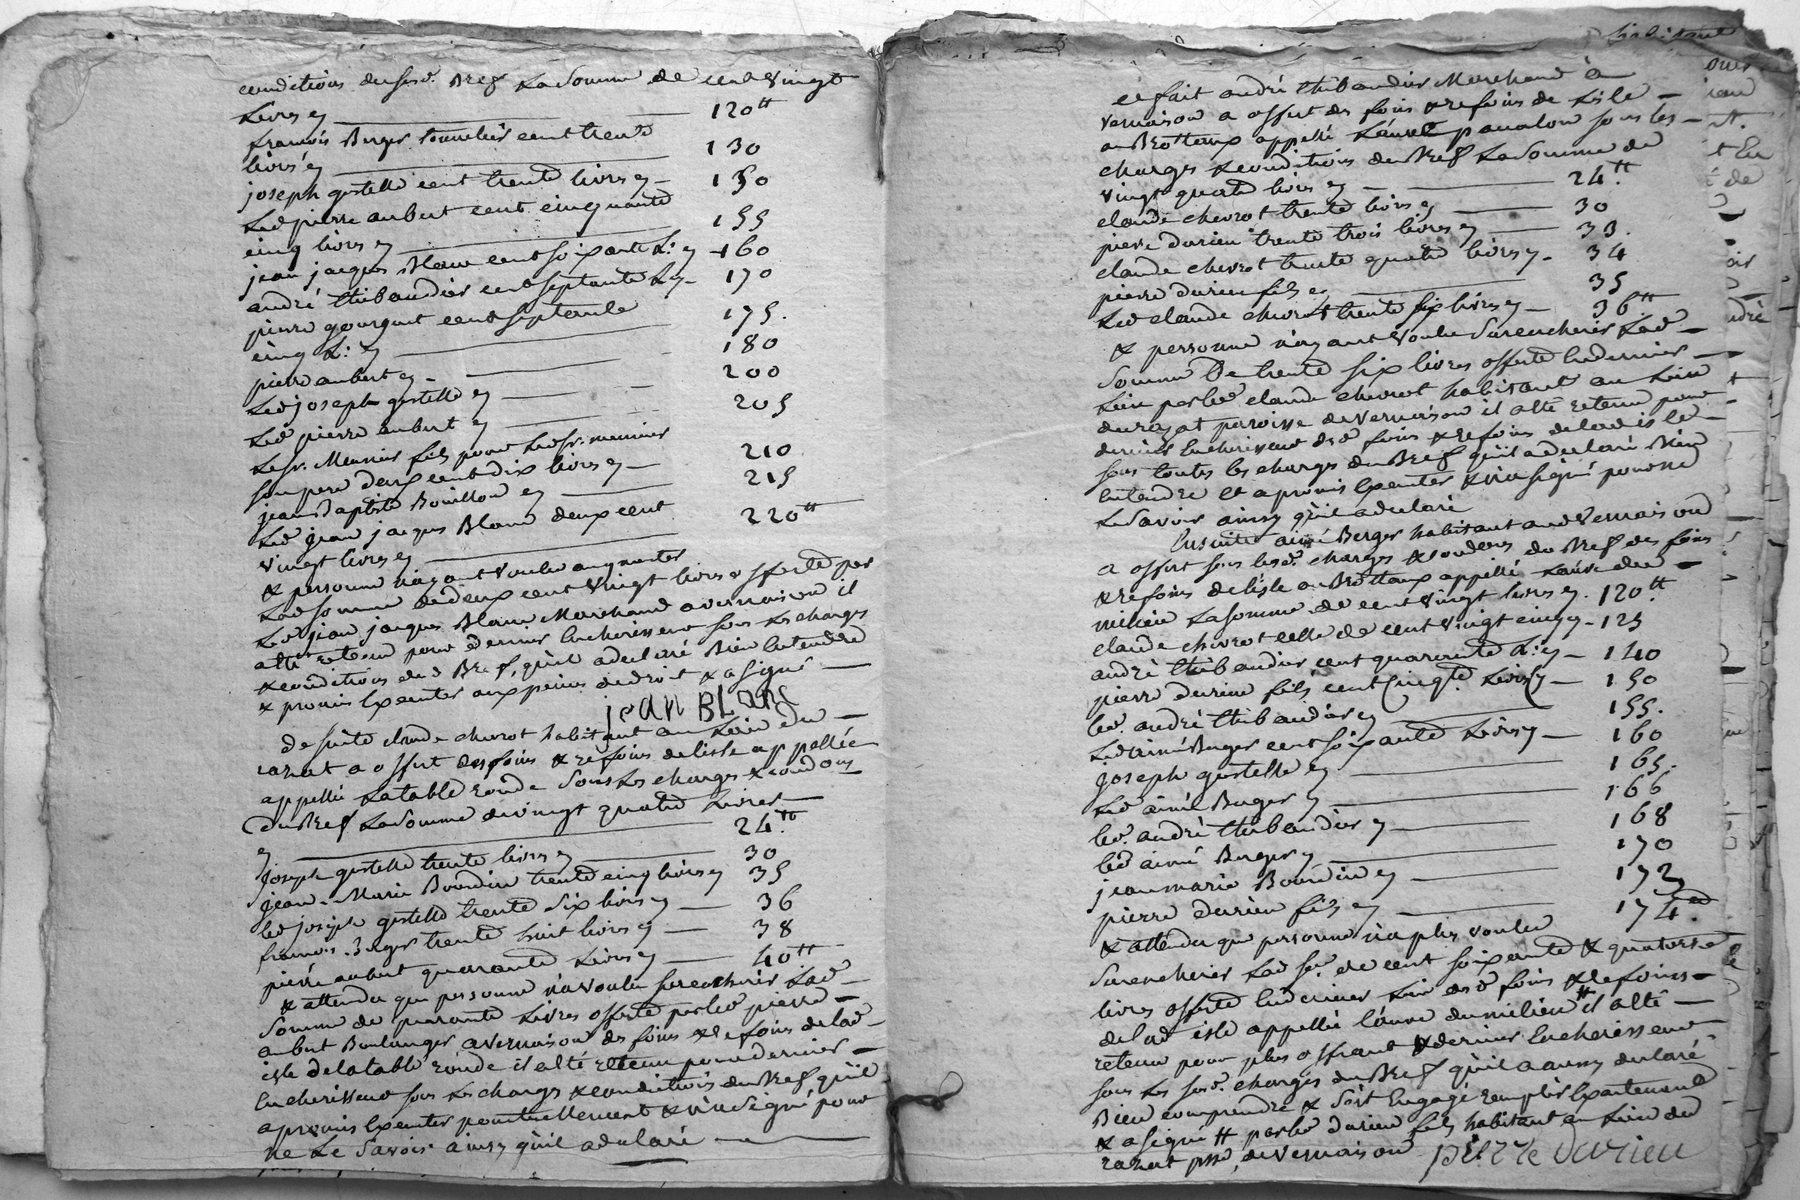 conditions dususd. Bref La Somme de cent vingt
Livres cy 120tt
francois Berger tonnelier cent trente
livres cy 130
joseph gestelle cent trente livres cy 150
Led pierre aubert cent cinquante
cinq livres cy 155
jean jacques Blanc cent soixante L: cy 160
andré thibaudier cent septante L cy 170
pierre gourgout cent septante
cinq L: cy 175.
pierre aubert cy 180
Led joseph gestelle cy 200
Led pierre aubert cy 205
Le sr. Meunier fils pour Led sr. meunier
son pere deux cent dix livres cy 210
jean Baptiste Bouillon cy 215
Led jean jacques Blanc deux cent
vingt livres cy 220tt
& personne n'ayant voulu augmenter
Lad somme de deux cent vingt livres offerte par
Led jean jacques Blanc Marchand a vernaison il
a été retenu pour dernier Encherisseur sous Les charges
& conditions dud Bref, qu'il a declaré Bien Entendre
& promis Executer aux peines de droit & a signé
jean BLanc
De suite claude chevrot habitant au Lieu du
razat a offert des foins & refoins de l'isle appellée
appellée La table ronde Sous Les charges & condons
du Bref La Somme de vingt quatre Livres
cy 24.tt
Joseph gestelle trente livres cy 30
Jean-Marie Bourdin trente cinq livres cy 35
led joseph gestelle trente six livres cy 36
francois Berger trente huit livres cy 38
pierre aubert quarante Livres cy 40tt
& attendu que personne n'a voulu surencherir Lad
Somme de quarante Livres offerte par led pierre
aubert Boulanger a vernaison des foins & refoins de lad
isle de la table ronde il a été retenu pour dernier
Encherisseur sous Les charges & conditions du Bref, qu'il
a promis Executer ponctuellement & n'a Signé pour
ne Le Savoir ainsy qu'il a declaré
ce fait andré thibaudier Marchand à
vernaison a offert des foins & refoins de L'isle
au Brotteaux appellé L'aure pavalou sous les
charges & conditions du Bref La Somme de
vingt quatre livres cy 24.tt
claude chevrot trente livres cy 30
pierre durieu trente trois livres cy 33.
claude chevrot trente quatre livres cy 34
pierre durieu fils cy 35
Led claude chevrot trente six livres cy 36tt
& personne n'ayant voulu Surencherir Lad
Somme De trente six livres offerte En dernier
Lieu par led claude chevrot habitant au Lieu
du razat paroisse de vernaison il a été retenu pour
dernier Encherisseur desd foins & refoins de lad isle
sous toutes les charges du Bref qu'il a declaré Bien
Entendre Et a promis Executer & n'a signé pour ne
Le Savoir ainsy qu'il a declaré
Ensuite aimé Berger habitant aud Vernaison
a offert sous lesd. charges & condons du Bref des foins
& refoins de l'isle au Brotteaux appellé L'aure du
milieu La somme de cent vingt livres cy 120.tt
claude chevrot celle de cent vingt cinq cy 125
andré thibaudier cent quarante L: cy 140
pierre durieu fils cent Cinqte. Livres cy 150
led. andré thibaudier cy 155.
Led aimé Berger cent soixante Livres cy 160
joseph gestelle cy 165.
Led aimé Berger cy 166
led. andré thibaudier cy 168
led aimé Berger cy 170
jean marie Bourdin cy 172
pierre durieu fils cy 174.
& attendu que personne n'a plus voulu
Surencherir Lad se. de cent soixante & quatorse
livres offerte En dernier Lieu desd foins & refoins
de lad isle appellée l'aure du milieu tt il a été
retenu pour plus offrant & dernier Encherisseur
sous Les susd. charges du Bref qu'il a aussy declaré
Bien comprendre & s'est Engagé remplir Exactement
& a signé tt par led durieu fils habitant au Lieu du
razat psse. de vernaison
pierre durieu